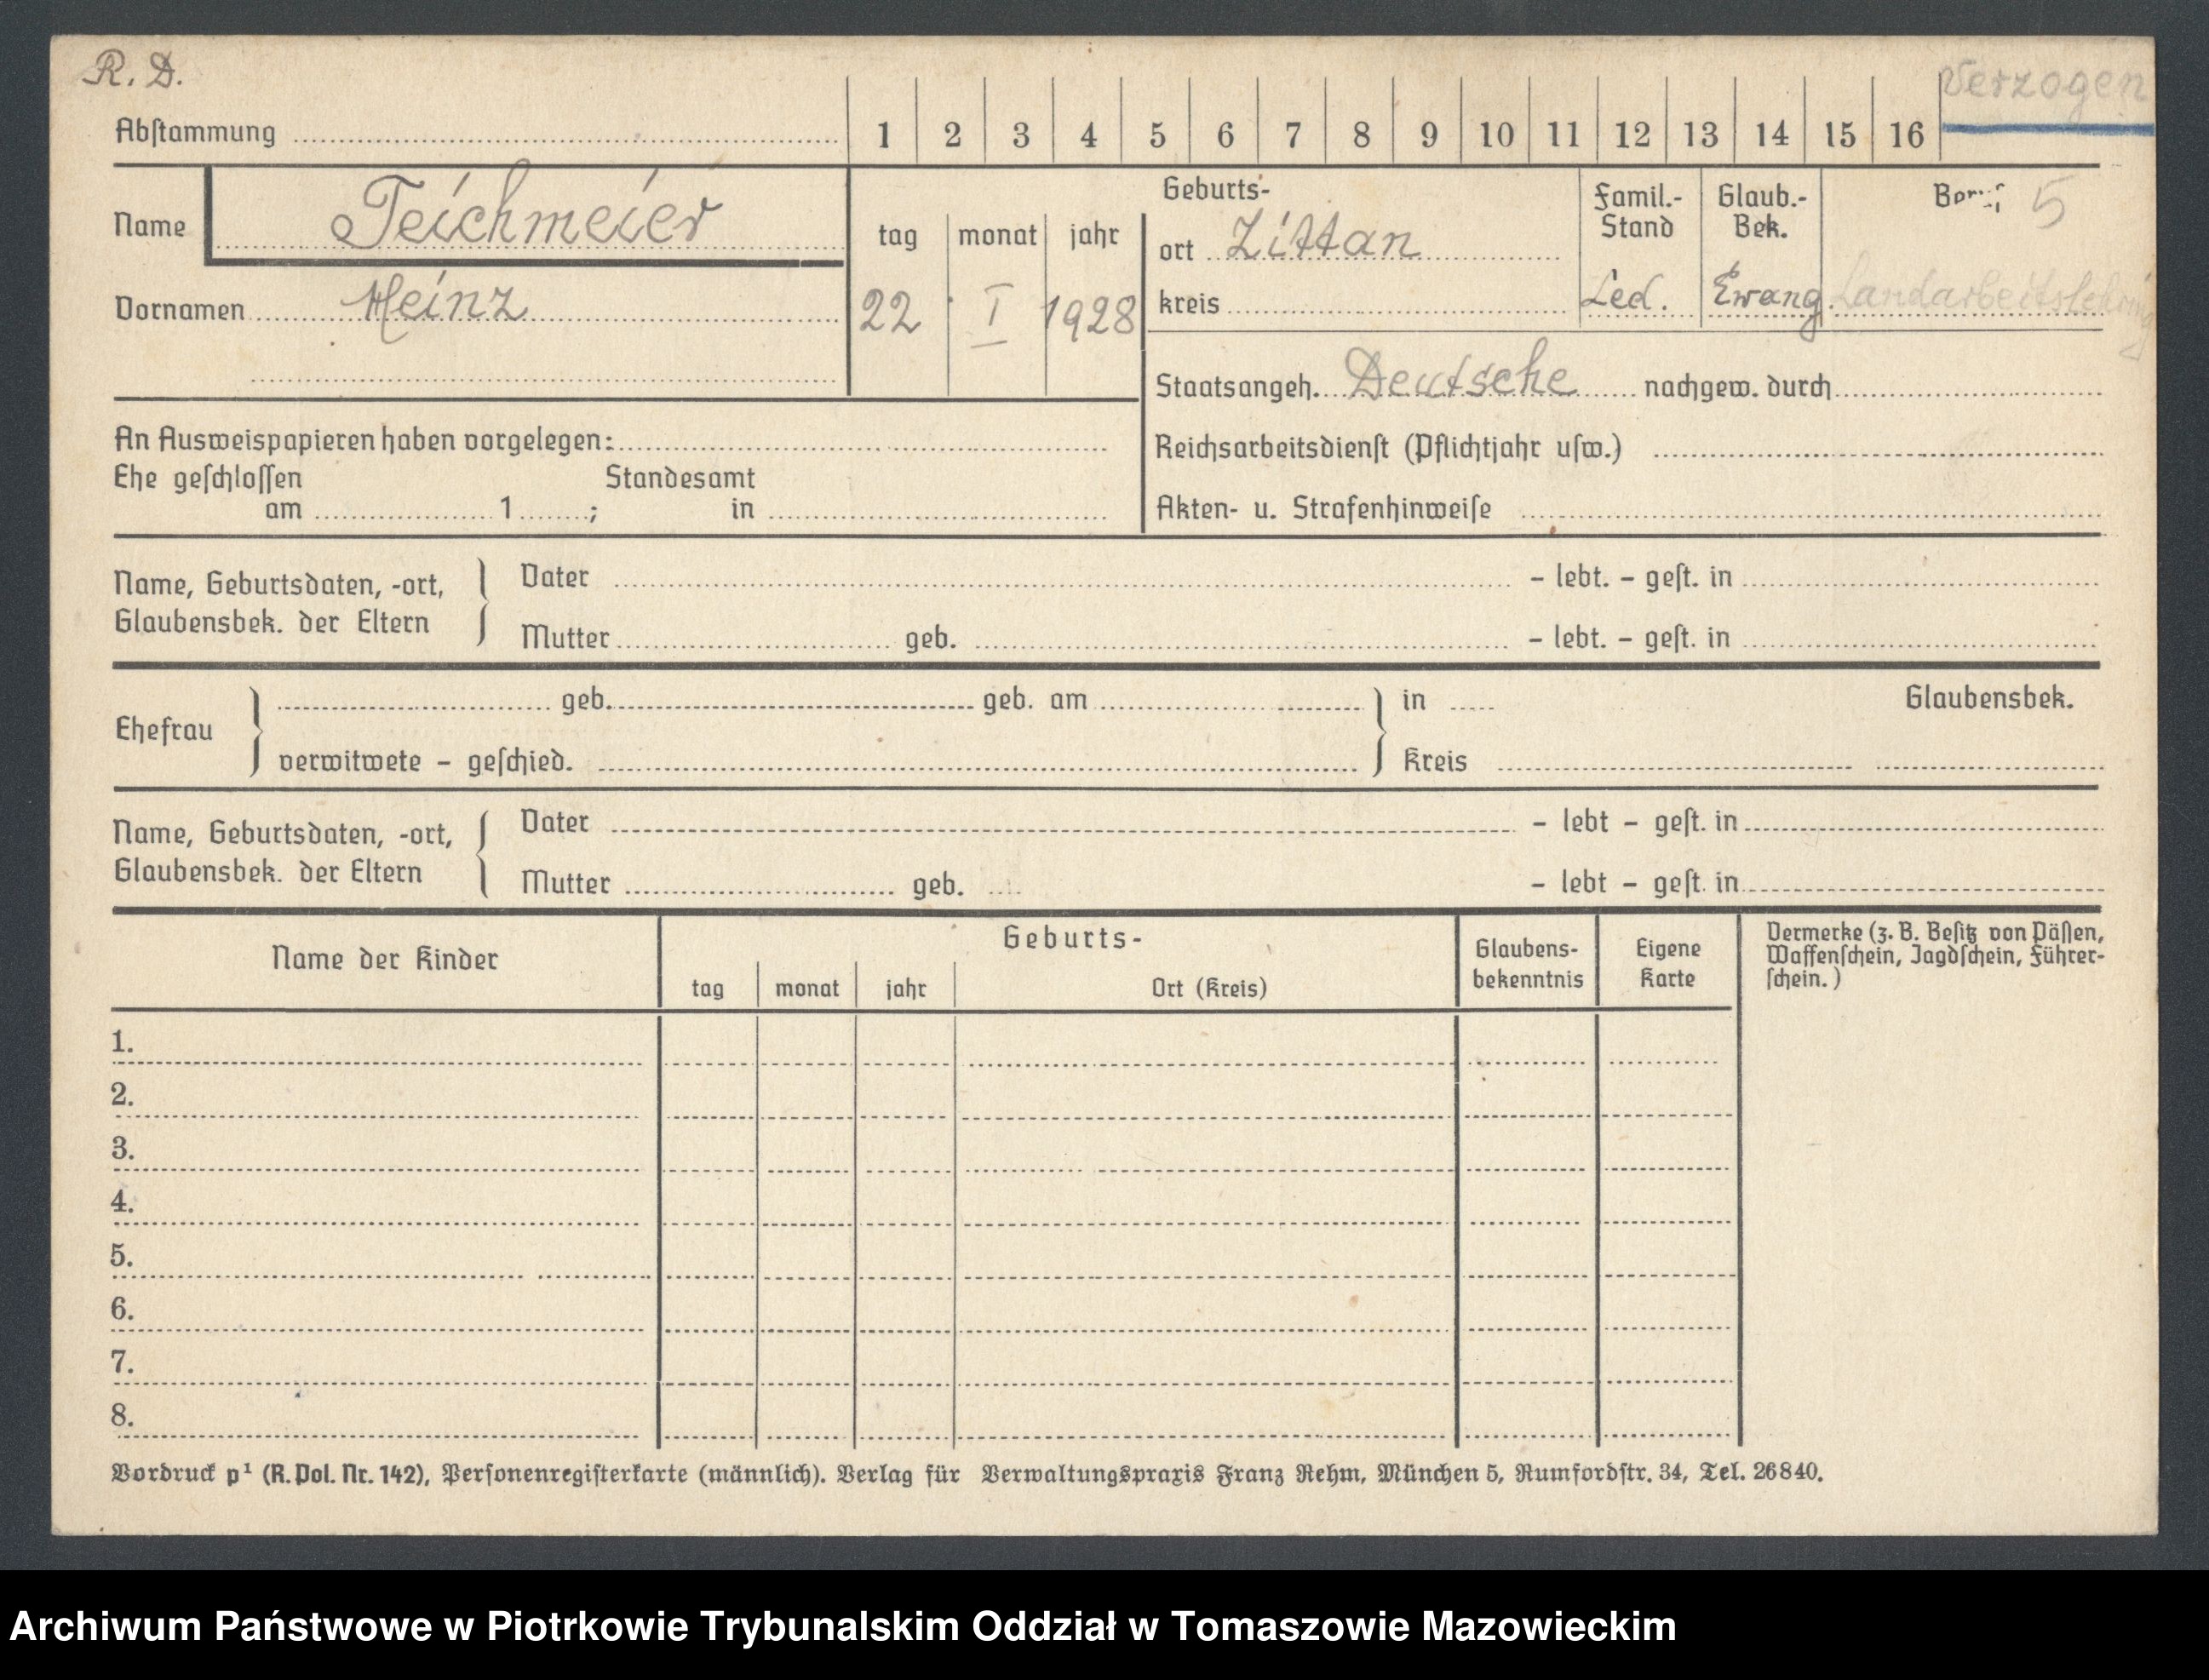 R. D.
Verzogen
Abstammung 1 2 3 4 5 6 7 8 9 10 11 12 13 14 15 16
Name Teichmeier
tag monat jahr
Geburts-
ort Zittan
kreis
Famil.-
Stand
Led.
Glaub.-
Bek.
Ewang.
Beruf 5
Landarbeitslehrling
Vornamen Heinz
22 I 1928
Staatsangeh. Deutsche nachgew. durch
An Ausweispapieren haben vorgelegen:
Reichsarbeitsdienst (Pflichtjahr usw.)
Ehe geschlossen Standesamt
am 1 ; in
Akten- u. Strafenhinweise
Name, Geburtsdaten, -ort,
Glaubensbek. der Eltern
Vater - lebt. - gest. in
Mutter geb. - lebt. - gest. in
Ehefrau
geb. geb. am in Glaubensbek.
verwitwete - geschied. Kreis
Name, Geburtsdaten, -ort,
Glaubensbek. der Eltern
Vater - lebt - gest. in
Mutter geb. - lebt - gest. in
Name der Kinder
Geburts-
tag monat jahr Ort (Kreis)
Glaubens-
bekenntnis
Eigene
Karte
Vermerke (z. B. Besitz von Pässen,
Waffenschein, Jagdschein, Führer-
schein.)
1.
2.
3.
4.
5.
6.
7.
8.
Vordruck p¹ (R. Pol. Nr. 142), Personenregisterkarte (männlich). Verlag für Verwaltungspraxis Franz Rehm, München 5, Rumfordstr. 34, Tel. 26840.
Archiwum Państwowe w Piotrkowie Trybunalskim Oddział w Tomaszowie Mazowieckim